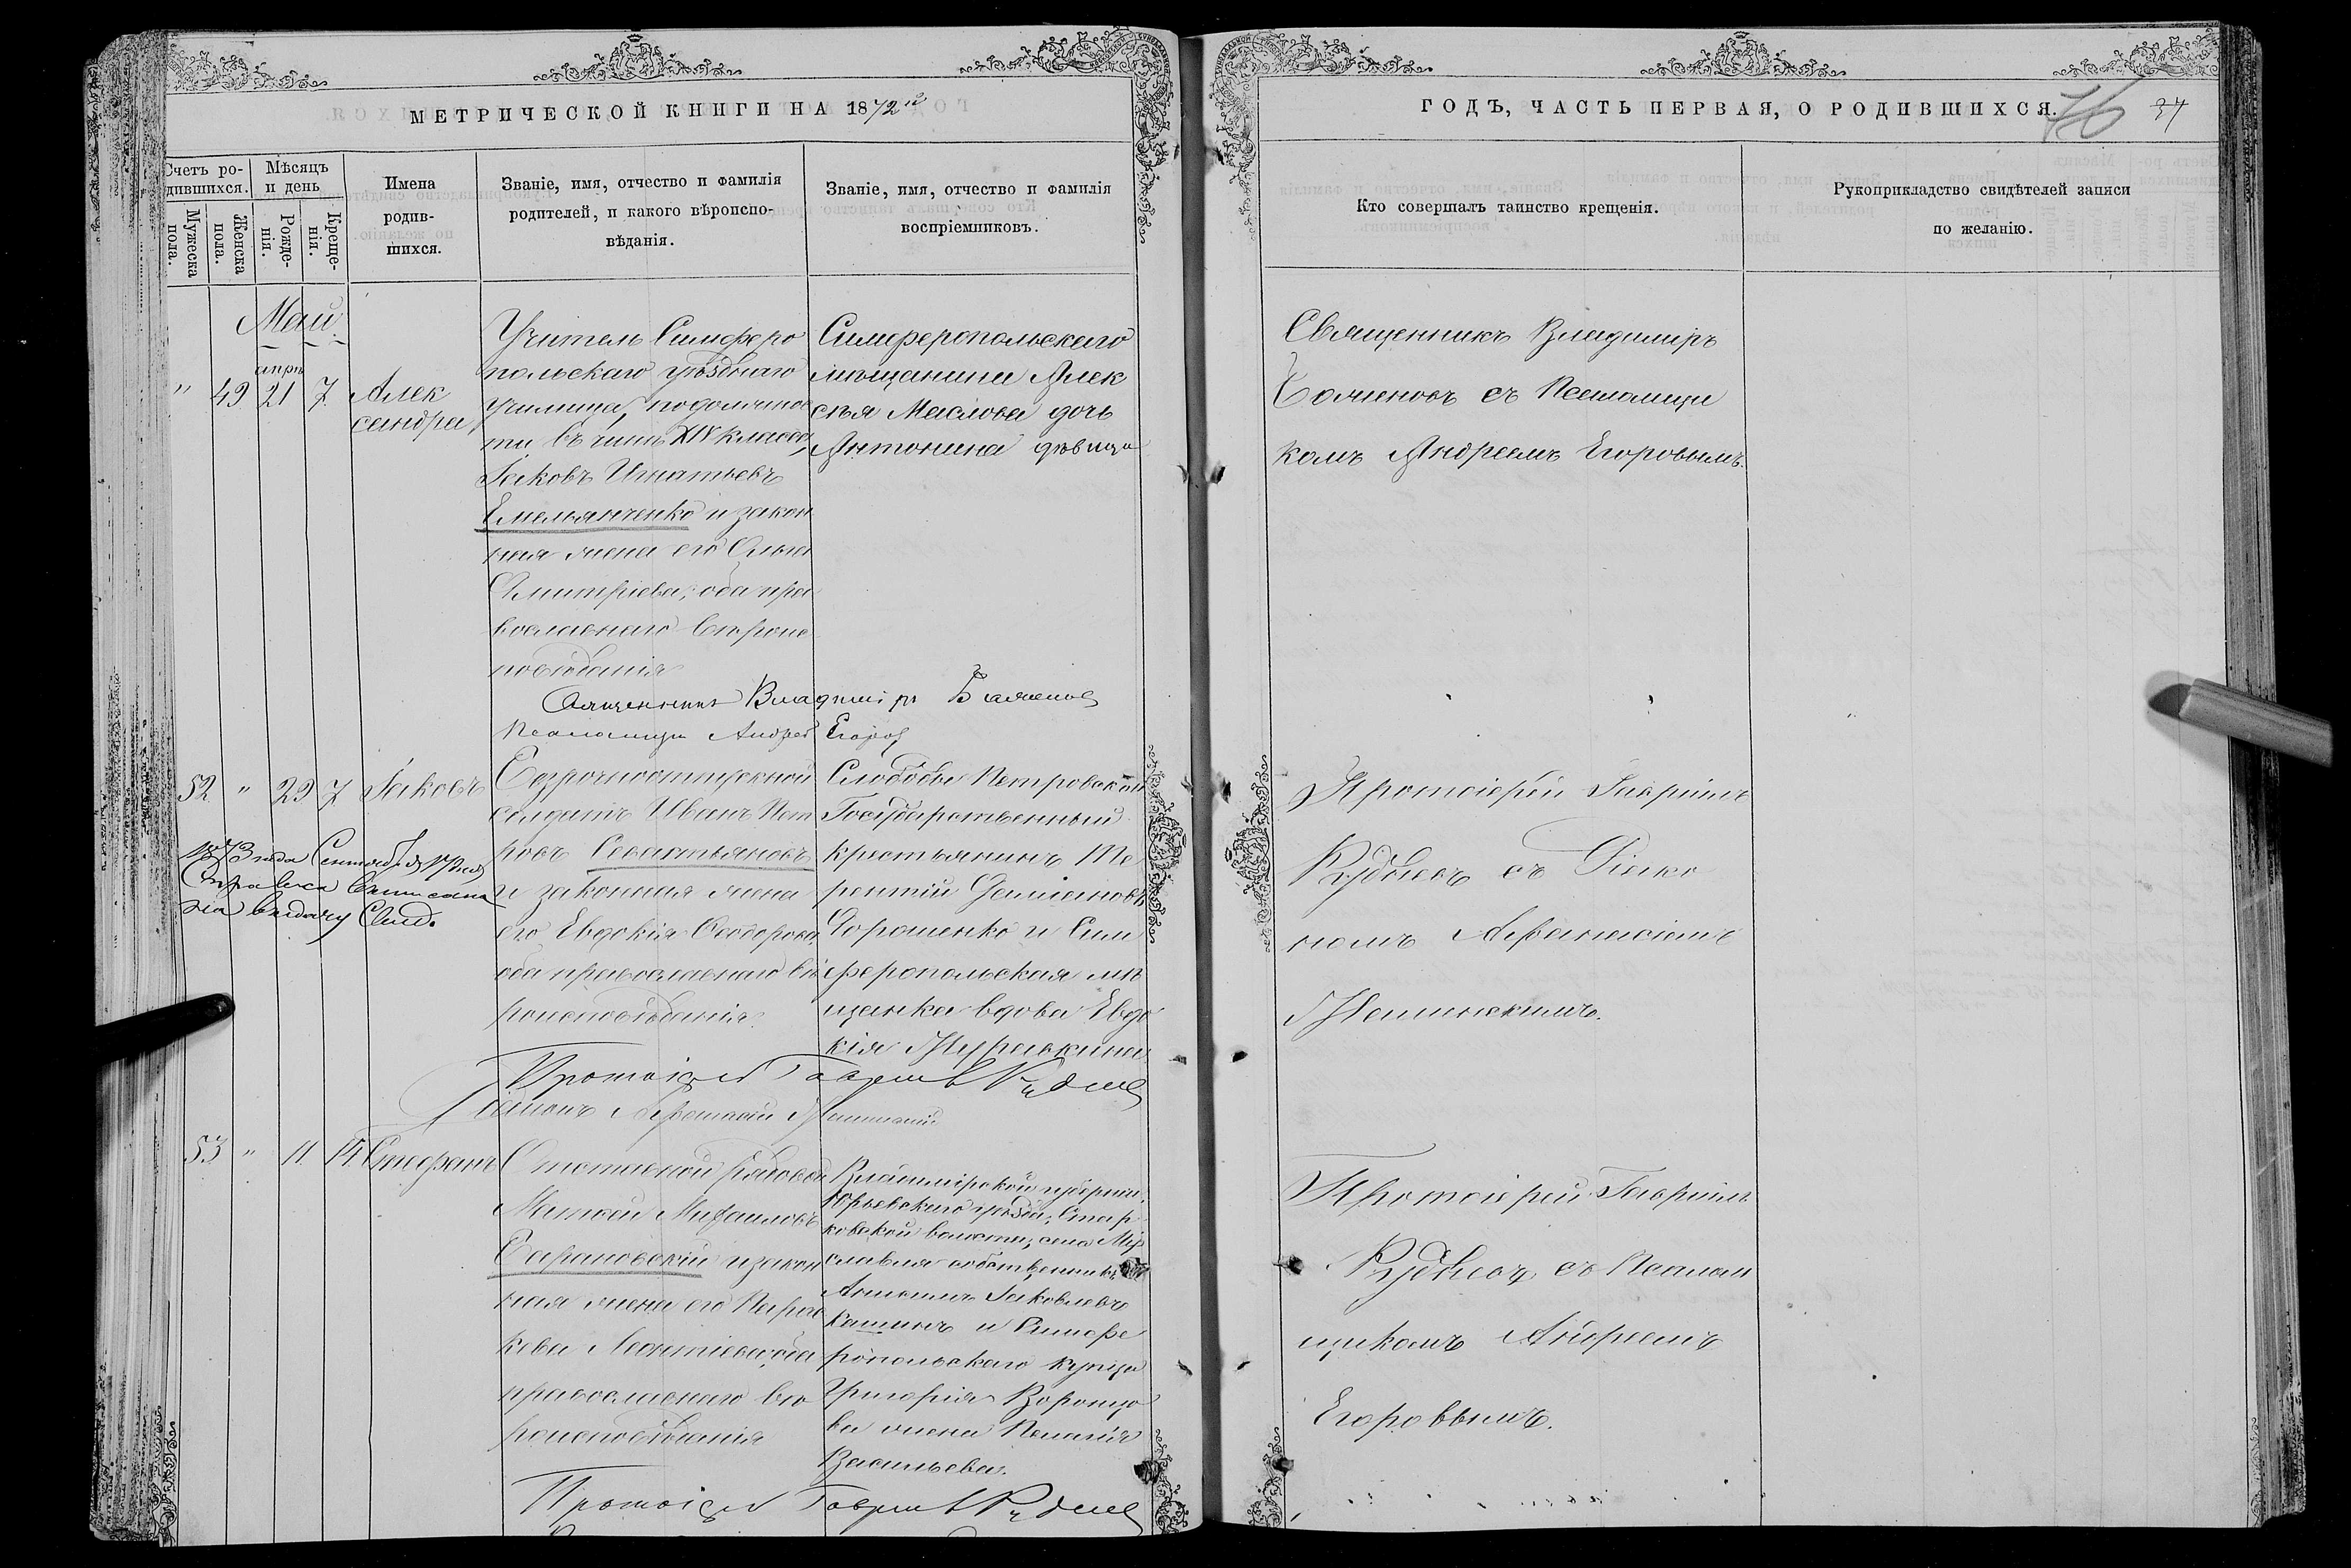 МЕТРИЧЕСКОЙ КНИГИ НА 1872
Счетъ ро-
дившихся.
Мѣсяцъ
и день
Мужеска
пола.
Женска
пола.
Рожде-
нія.
Креще-
нія.
Имена
родив-
шихся.
Званіе, имя, отчество и фамилія
родителей, и какого вѣроиспо-
вѣданія.
Званіе, имя, отчество и фамилія
воспріемниковъ.
Май
апрѣ
" 49 21 7
Алек
сандра
Учитель Симферо
польскаго уѣзднаго
училища,
въ чинѣ XIV класса,
Іаковъ Игнатьевъ
Емельянченко и закон
ная жена его Ольга
Димитріева, оба пра
вославнаго вѣроис
повѣданія
Симферопольскаго
мѣщанина Алек
сѣя Маслова дочь
Антонина дѣвица
Священникъ Владиміръ Баженов
Псаломщик Андрей Егоров
52 " 29 7 Іаковъ
1873 года Сентября
Справка выписана
на выдачу Свид.
Безсрочноотпускной
солдатъ Иванъ Пет
ровъ Севастьяновъ
и законная жена
его Евдокія Ѳеодорова,
оба православнаго вѣ
роисповѣданія.
Слободы Петровской
Государственный
крестьянинъ Те
рентій Даміановъ
Дорошенко и Сим
феропольская мѣ
щанка вдова Евдо
кія
Протоіерей Гавріилъ Руднев
Діаконъ Афанасій
53 " 11 14 Стефанъ
Отставной рядовой
Матѳей Михаиловъ
Барановскій и закон
ная жена его Параc
кева Леонтіева, оба
православнаго вѣ
роисповѣданія
Владимірской губерніи,
Юрьевскаго уѣзда, Стар
ковской волости, села Мір
славля собственникъ
Іаковлевъ
Кашинъ и Симфе
ропольскаго купца
Григорія Воронцо
ва жена Пелагія
Васильева.
Протоіерей Гавріилъ Руднев
ГОДЪ, ЧАСТЬ ПЕРВАЯ, О РОДИВШИХСЯ.
76 37
Кто совершалъ таинство крещенія.
Рукоприкладство свидѣтелей записи
по желанію.
Священникъ Владиміръ
Баженовъ съ Псаломщи
комъ Андреемъ Егоровымъ.
Протоіерей Гавріилъ
Рудневъ съ Діако
номъ Афанасіемъ
Протоіерей Гавріилъ
Рудневъ съ Псалом
щикомъ Андреемъ
Егоровымъ.